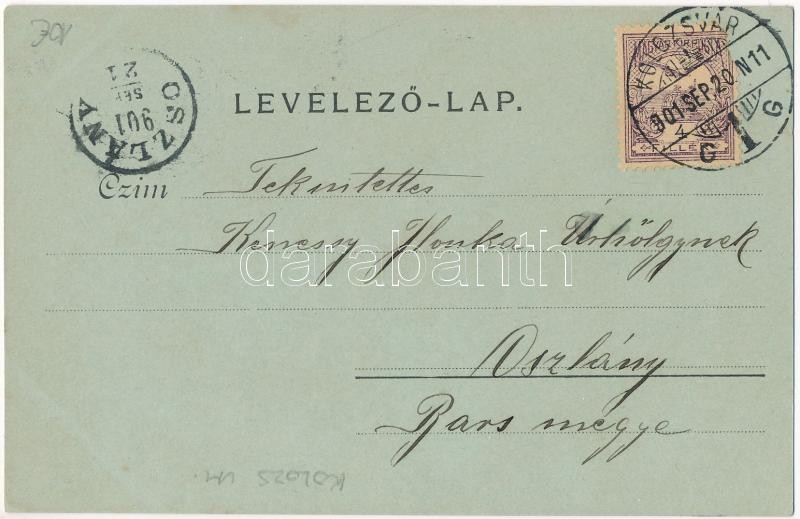 10€
KOLOZSVÁR
901 SEP. 20 N11
G 1 G
MAGYAR KIR. POSTA
4
FILLÉR
OSZLÁNY
901
SEP
21
LEVELEZŐ-LAP.
Czim
Tekintettes
Kenessy Ilonka Úrhölgynek
darabanth
Oszlány
Bars megye
KOLOZS VM.